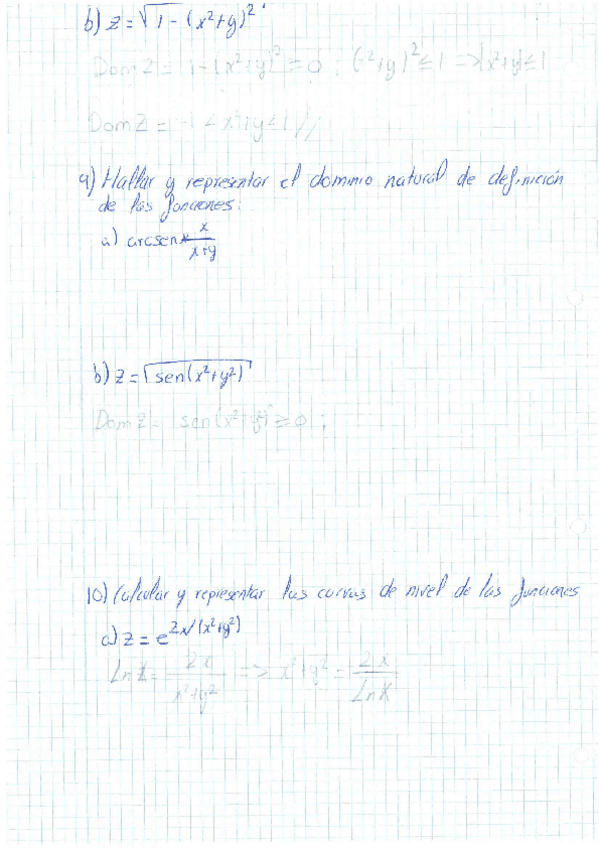 b) z = √1 - (x²+y)²
Dom Z = 1 - (x²+y)² ≥ 0 ; (x²+y)² ≤ 1 => |x²+y| ≤ 1
Dom Z = -1 ≤ x²+y ≤ 1 //
9) Hallar y representar el dominio natural de definición
de las funciones:
a) arcsen x/x+y
b) z = √sen(x²+y²)
Dom Z = sen(x²+y²) ≥ 0 ;
10) Calcular y representar las curvas de nivel de las funciones
a) z = e^2x/(x²+y²)
Ln K = 2x/x²+y² => x²+y² = 2x/Ln K